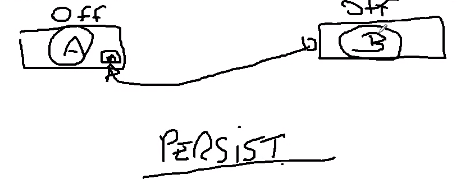 Off
Off
A
B
PERSIST